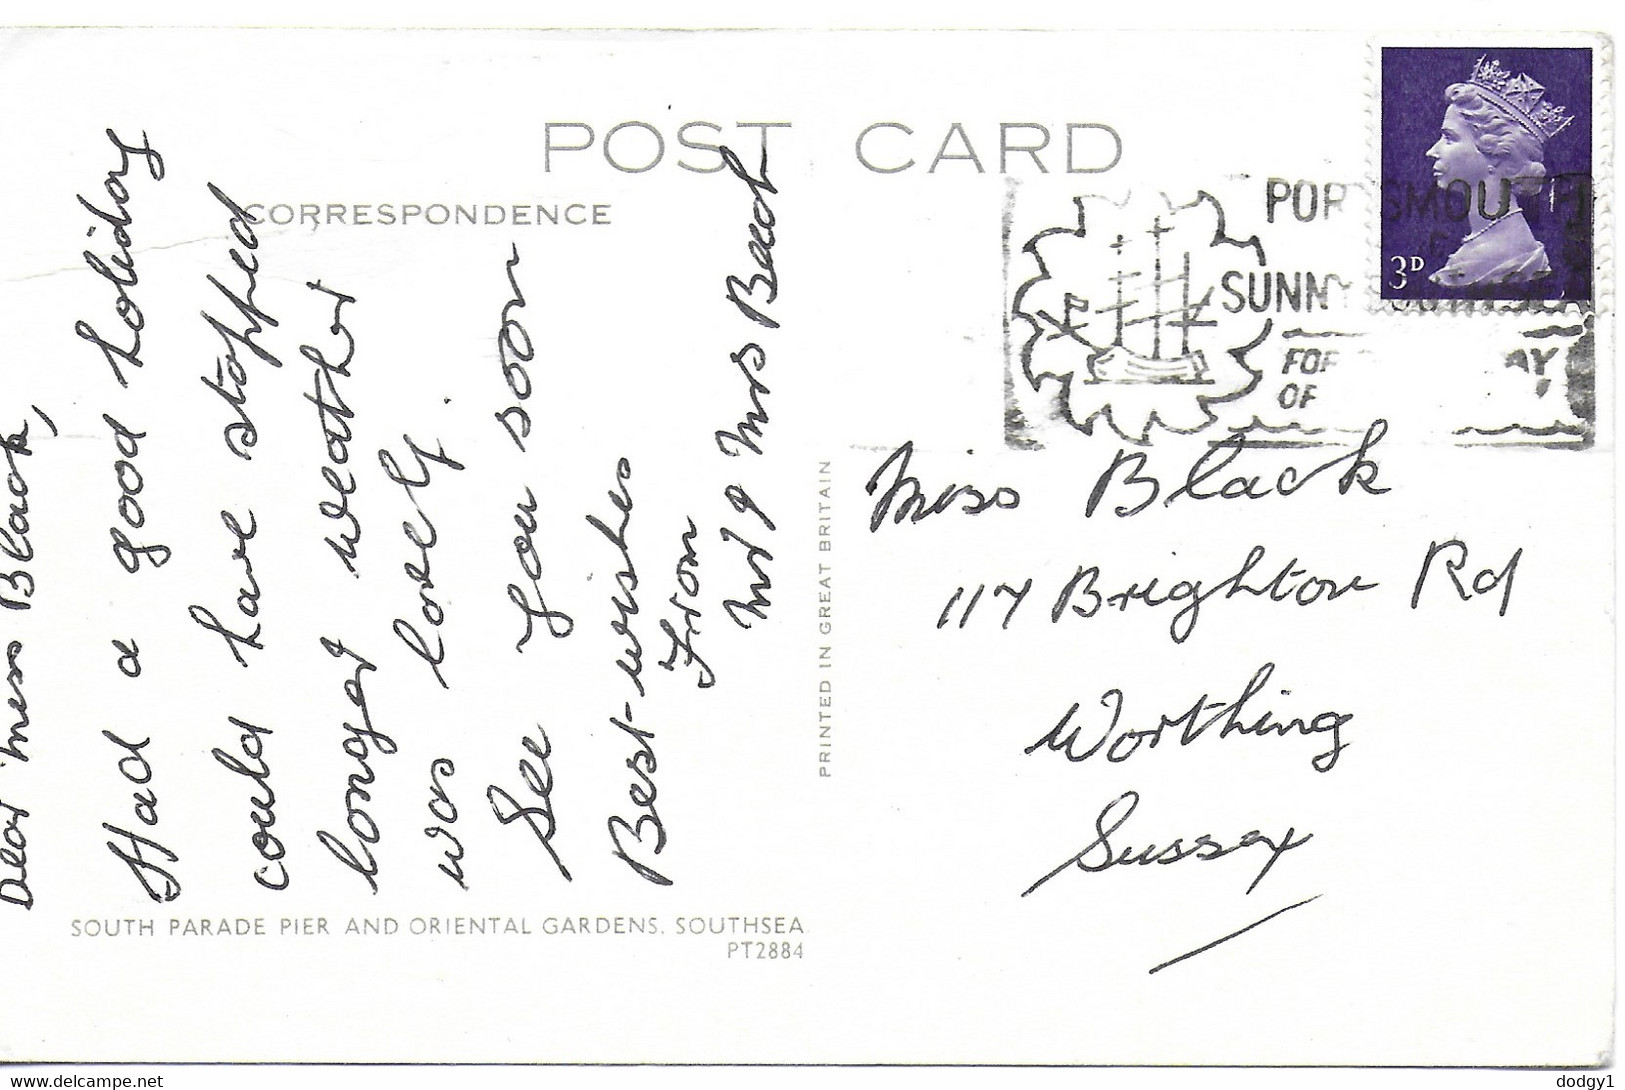 POST CARD
CORRESPONDENCE
Dear Miss Black,
Had a good holiday
could have stopped
longer weather
was lovely.
See you soon
Best-wishes
From
Mr & Mrs Beech
SOUTH PARADE PIER AND ORIENTAL GARDENS, SOUTHSEA
PT2884
PRINTED IN GREAT BRITAIN
3D
PORTSMOUTH
SUNNY SOUTHSEA
FOR
OF
Miss Black
117 Brighton Rd
Worthing
Sussex
delcampe.net
dodgy1